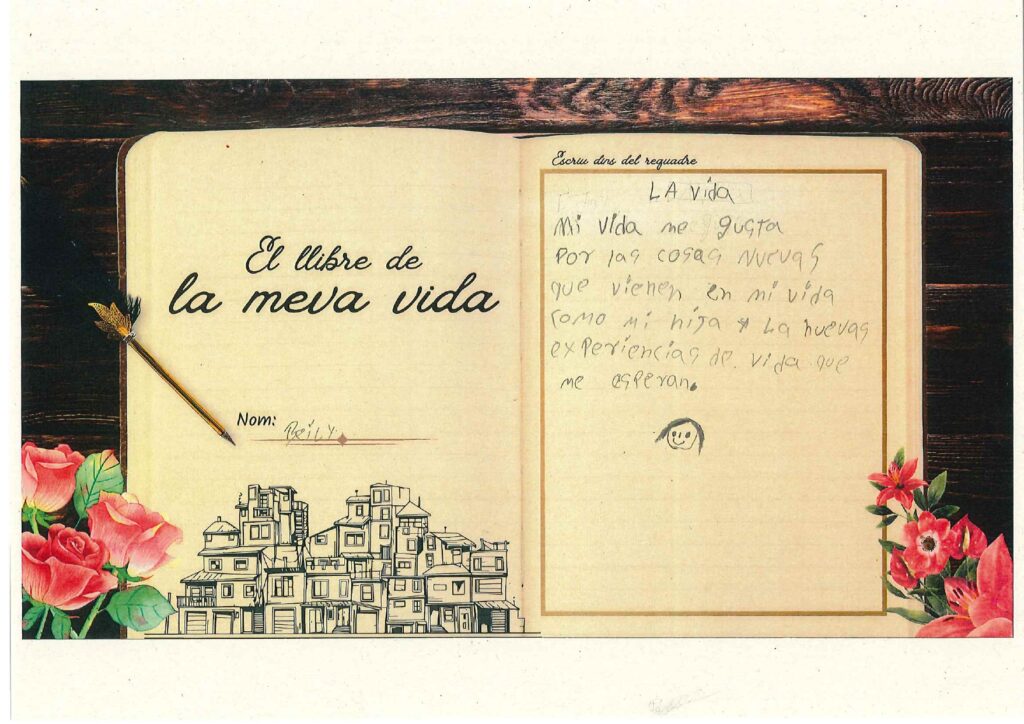 El llibre de
la meva vida
Nom: BeiLY.
Escriu dins del requadre
LA vida
Mi vida me gusta
Por las cosas Nuevas
que vienen en mi vida
como mi hija y La nuevas
experiencias de vida que
me esperan.